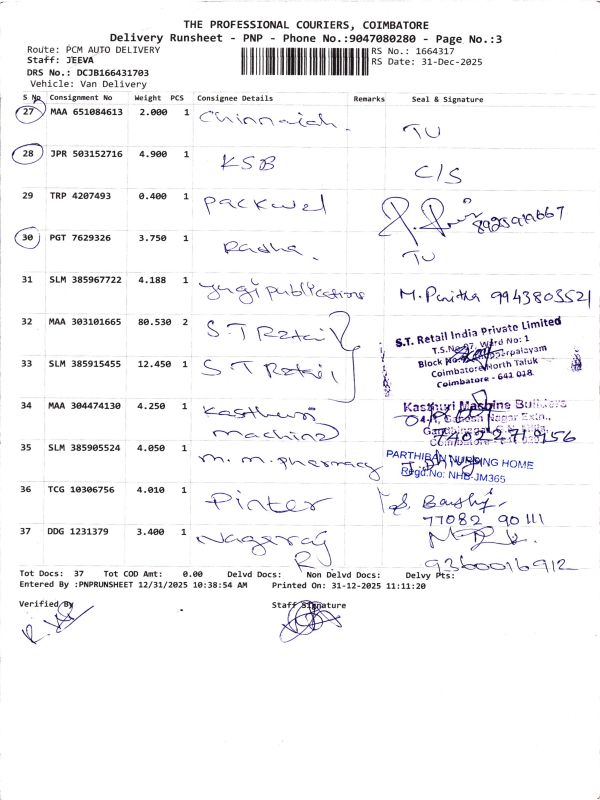 THE PROFESSIONAL COURIERS, COIMBATORE
Delivery Runsheet - PNP - Phone No.:9047080280 - Page No.:3
Route: PCM AUTO DELIVERY
RS No.: 1664317
Staff: JEEVA
RS Date: 31-Dec-2025
DRS No.: DCJB166431703
Vehicle: Van Delivery
S No Consignment No Weight PCS Consignee Details Remarks Seal & Signature
27 MAA 651084613 2.000 1 Chinnaiah. TU
28 JPR 503152716 4.900 1 KSB C/S
29 TRP 4207493 0.400 1 Packwel 8925919667
30 PGT 7629326 3.750 1 Radha. TU
31 SLM 385967722 4.188 1 yugi publications M. Punitha 9943803521
32 MAA 303101665 80.530 2 S.T Retail
S.T. Retail India Private Limited
T.S.No.97, Ward No: 1
Block No.
Coimbatore North Taluk
Coimbatore - 641 018.
33 SLM 385915455 12.450 1 S T Retail
34 MAA 304474130 4.250 1 Kasthuri
machine
Kasthuri Machine Builders
Nagar Extn.,
74022719156
35 SLM 385905524 4.050 1 m.m.pharmacy
PARTHIBAN NURSING HOME
Regd.No: NHB-JM365
36 TCG 10306756 4.010 1 Pinter
77082 90111
37 DDG 1231379 3.400 1 Nagaraj
RJ
9360016912
Tot Docs: 37 Tot COD Amt: 0.00 Delvd Docs: Non Delvd Docs: Delvy Pts:
Entered By :PNPRUNSHEET 12/31/2025 10:38:54 AM Printed On: 31-12-2025 11:11:20
Verified By Staff Signature